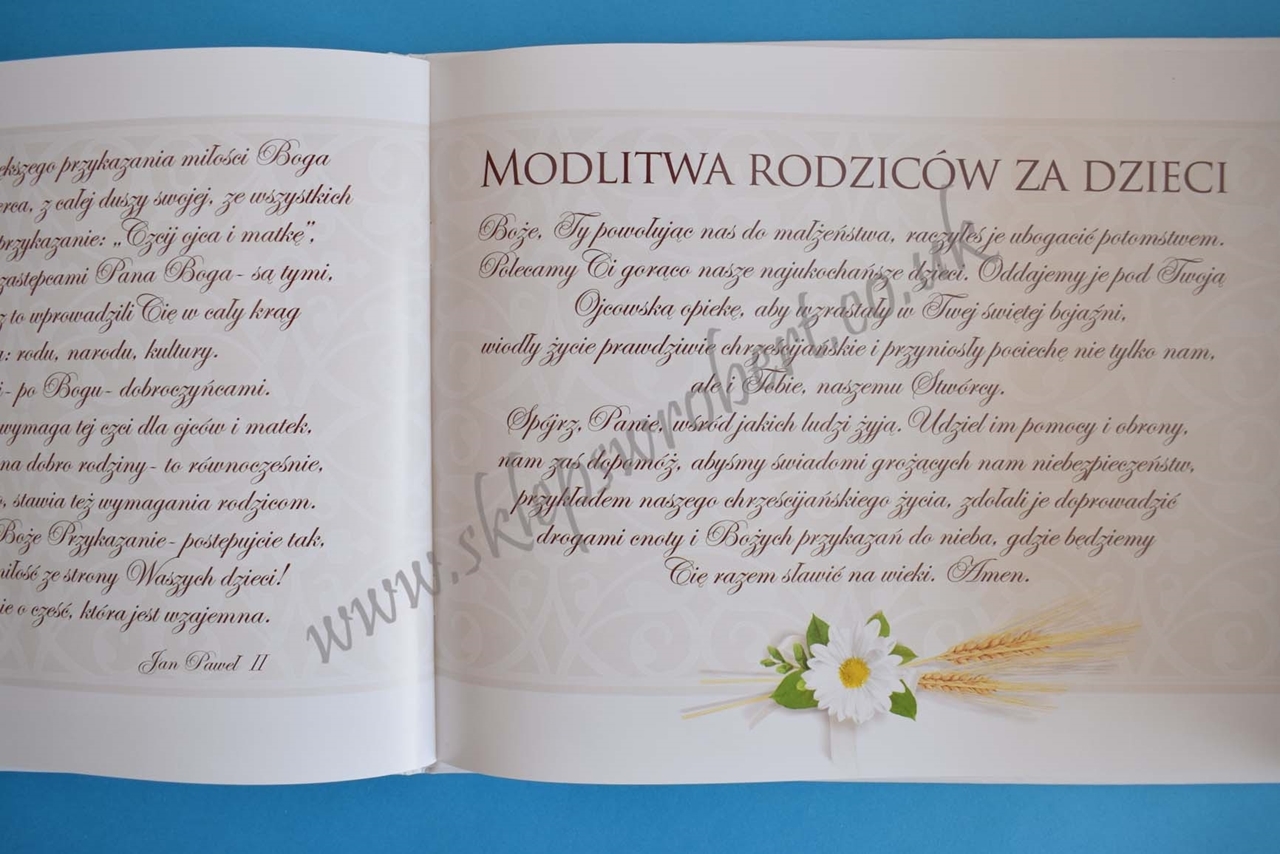 przykazania miłości Boga
z całej duszy swojej, ze wszystkich
przykazanie: „Czcij ojca i matkę”,
zastępcami Pana Boga - są tymi,
to wprowadzili Cię w cały krąg
rodu, narodu, kultury.
- po Bogu - dobroczyńcami.
wymaga tej czci dla ojców i matek,
na dobro rodziny - to równocześnie,
stawia też wymagania rodzicom.
Boże Przykazanie - postępujcie tak,
miłość ze strony Waszych dzieci!
o cześć, która jest wzajemna.
Jan Paweł II
MODLITWA RODZICÓW ZA DZIECI
Boże, Ty powołując nas do małżeństwa, raczyłeś je ubogacić potomstwem.
Polecamy Ci gorąco nasze najukochańsze dzieci. Oddajemy je pod Twoją
Ojcowską opiekę, aby wzrastały w Twej świętej bojaźni,
wiodły życie prawdziwie chrześcijańskie i przyniosły pociechę nie tylko nam,
ale i Tobie, naszemu Stwórcy.
Spójrz, Panie, wśród jakich ludzi żyją. Udziel im pomocy i obrony,
nam zaś dopomóż, abyśmy świadomi grożących nam niebezpieczeństw,
przykładem naszego chrześcijańskiego życia, zdołali je doprowadzić
drogami cnoty i Bożych przykazań do nieba, gdzie będziemy
Cię razem sławić na wieki. Amen.
www.sklepswrobert.co.uk